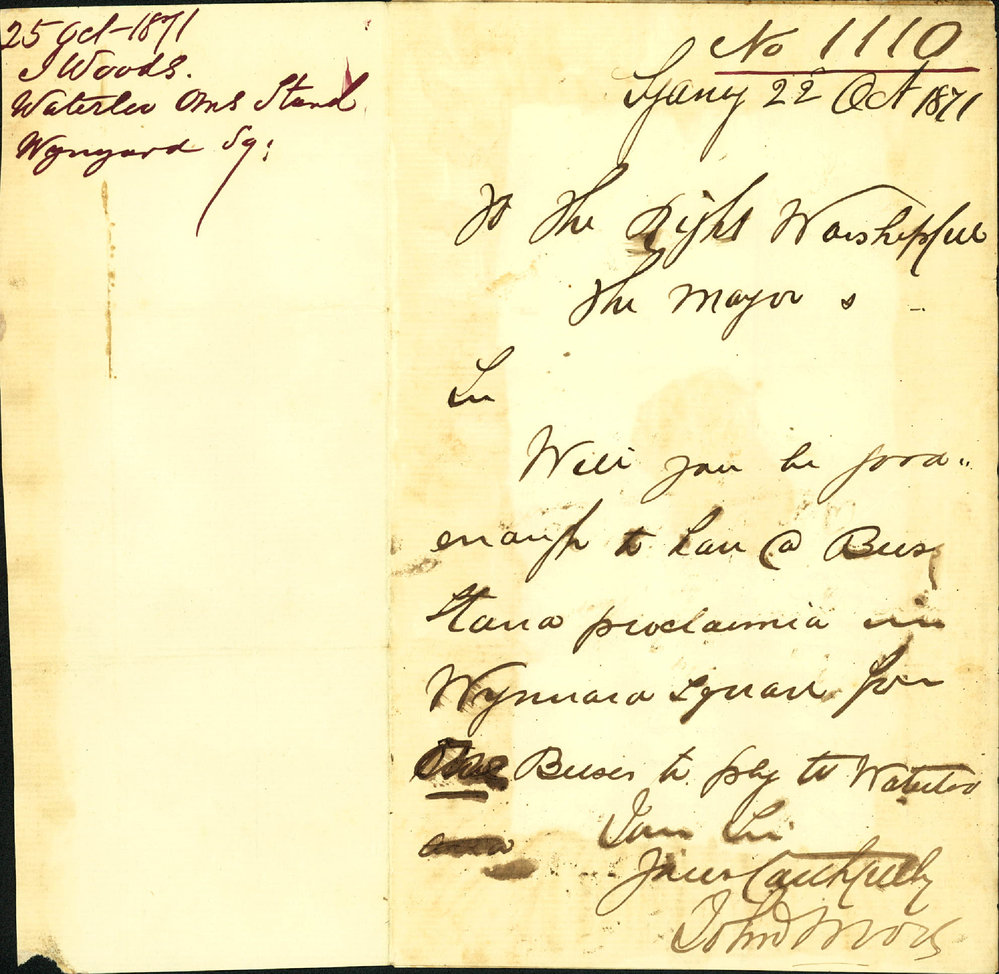 25 Oct - 1871
J Woods.
Waterloo Bus Stand
Wynyard Sq:
No 1110
Sydney 22 Oct 1871
To the Right Worshipful
the Mayor
Sir
Will you be good
enough to have a Bus
Stand proclaimed in
Wynyard Square for
Buses to ply to Waterloo
I am Sir
Yours faithfully
John Woods